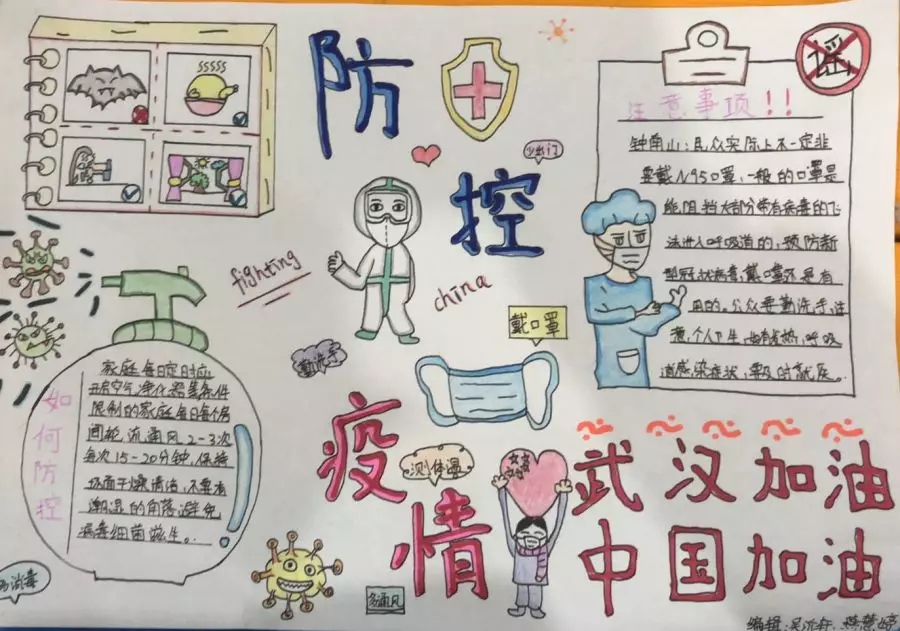 防
控
疫
情
少出门
fighting
china
戴口罩
勤洗手
测体温
多通风
消毒
谣
注意事项!!
钟南山:民众实际上不一定非
要戴N95口罩,一般的口罩是
能阻挡大部分带有病毒的飞
沫进入呼吸道的,预防新
型冠状病毒,戴口罩还是有
用的。公众要勤洗手,注
意个人卫生,如有发热,呼吸
道感染症状,要及时就医。
如何防控
家庭每日定时应
开启空气净化器,无条件
限制的家庭每日每个房
间轮流通风2-3次
每次15-20分钟,保持
地面干燥清洁,不要有
潮湿的角落,避免
病毒细菌滋生。
武汉加油
中国加油
编辑: